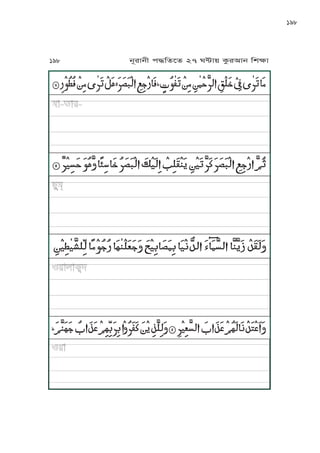 ১৯৮
১৯৮ নূরানী পদ্ধতিতে ২৭ ঘণ্টায় কুরআন শিক্ষা
مَا تَرٰى فِىْ خَلْقِ الرَّحْمٰنِ مِنْ تَفٰوُتٍ ؕ فَارْجِعِ الْبَصَرَ ۙ هَلْ تَرٰى مِنْ فُطُوْرٍ ۝
মা-তারা-
ثُمَّ ارْجِعِ الْبَصَرَ كَرَّتَيْنِ يَنْقَلِبْ اِلَيْكَ الْبَصَرُ خَاسِئًا وَّهُوَ حَسِيْرٌ ۝
ছুম্
وَلَقَدْ زَيَّنَّا السَّمَآءَ الدُّنْيَا بِمَصَابِيْحَ وَجَعَلْنٰهَا رُجُوْمًا لِّلشَّيٰطِيْنِ
ওয়ালাক্বদ
وَاَعْتَدْنَا لَهُمْ عَذَابَ السَّعِيْرِ ۝ وَلِلَّذِيْنَ كَفَرُوْا بِرَبِّهِمْ عَذَابُ جَهَنَّمَ ؕ
ওয়া